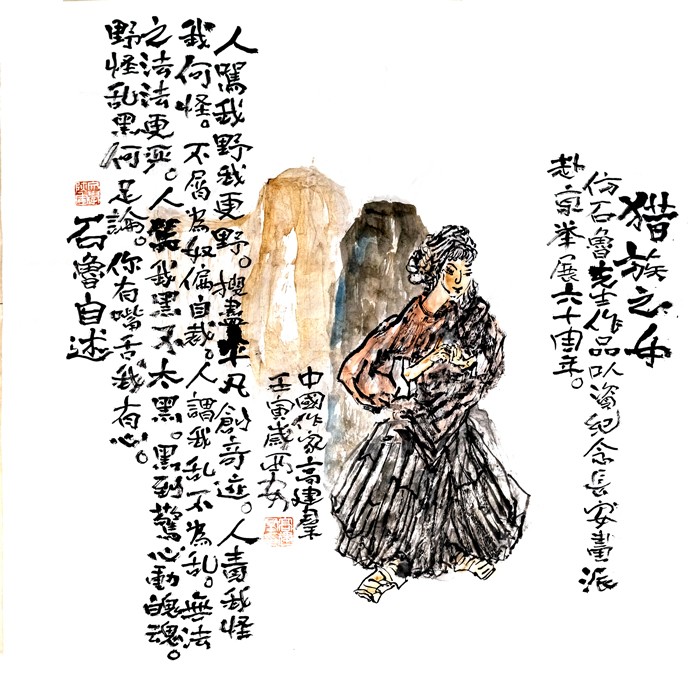 猎族之女
仿石魯先生作品以资纪念長安畫派
赴京举展六十周年。
中國作家高建群
壬寅歲西安
人罵我野我更野。搜盡平凡創奇迹。人責我怪
我何怪。不屑為奴偏自裁。人謂我乱不為乱。無法
之法法更严。人罵我黑不太黑。黑到驚心動魄魂。
野怪乱黑何足論。你有嘴舌我有心。
石魯自述